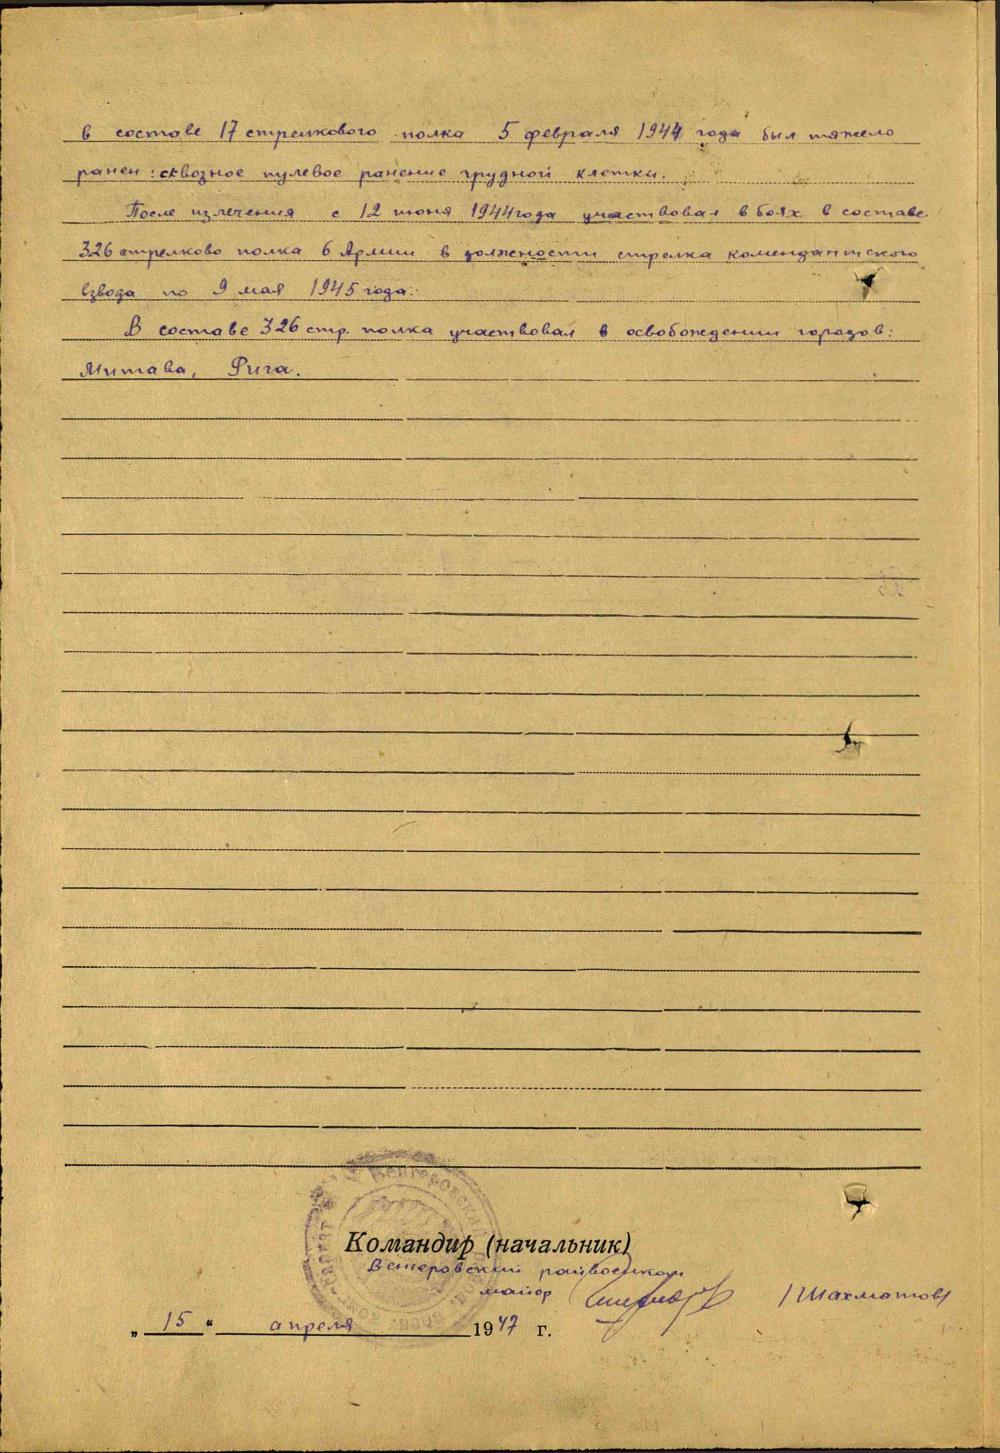 в составе 17 стрелкового полка 5 февраля 1944 года был тяжело
ранен: сквозное пулевое ранение грудной клетки.
После излечения с 12 июня 1944 года участвовал в боях в составе
326 стрелково полка 6 Армии в должности стрелка комендантского
взвода по 9 мая 1945 года.
В составе 326 стр. полка участвовал в освобождении городов:
Митава, Рига.
Венгеровский
Командир (начальник)
Венгеровский райвоенком
майор /Шахматов/
„15“ апреля 1947 г.